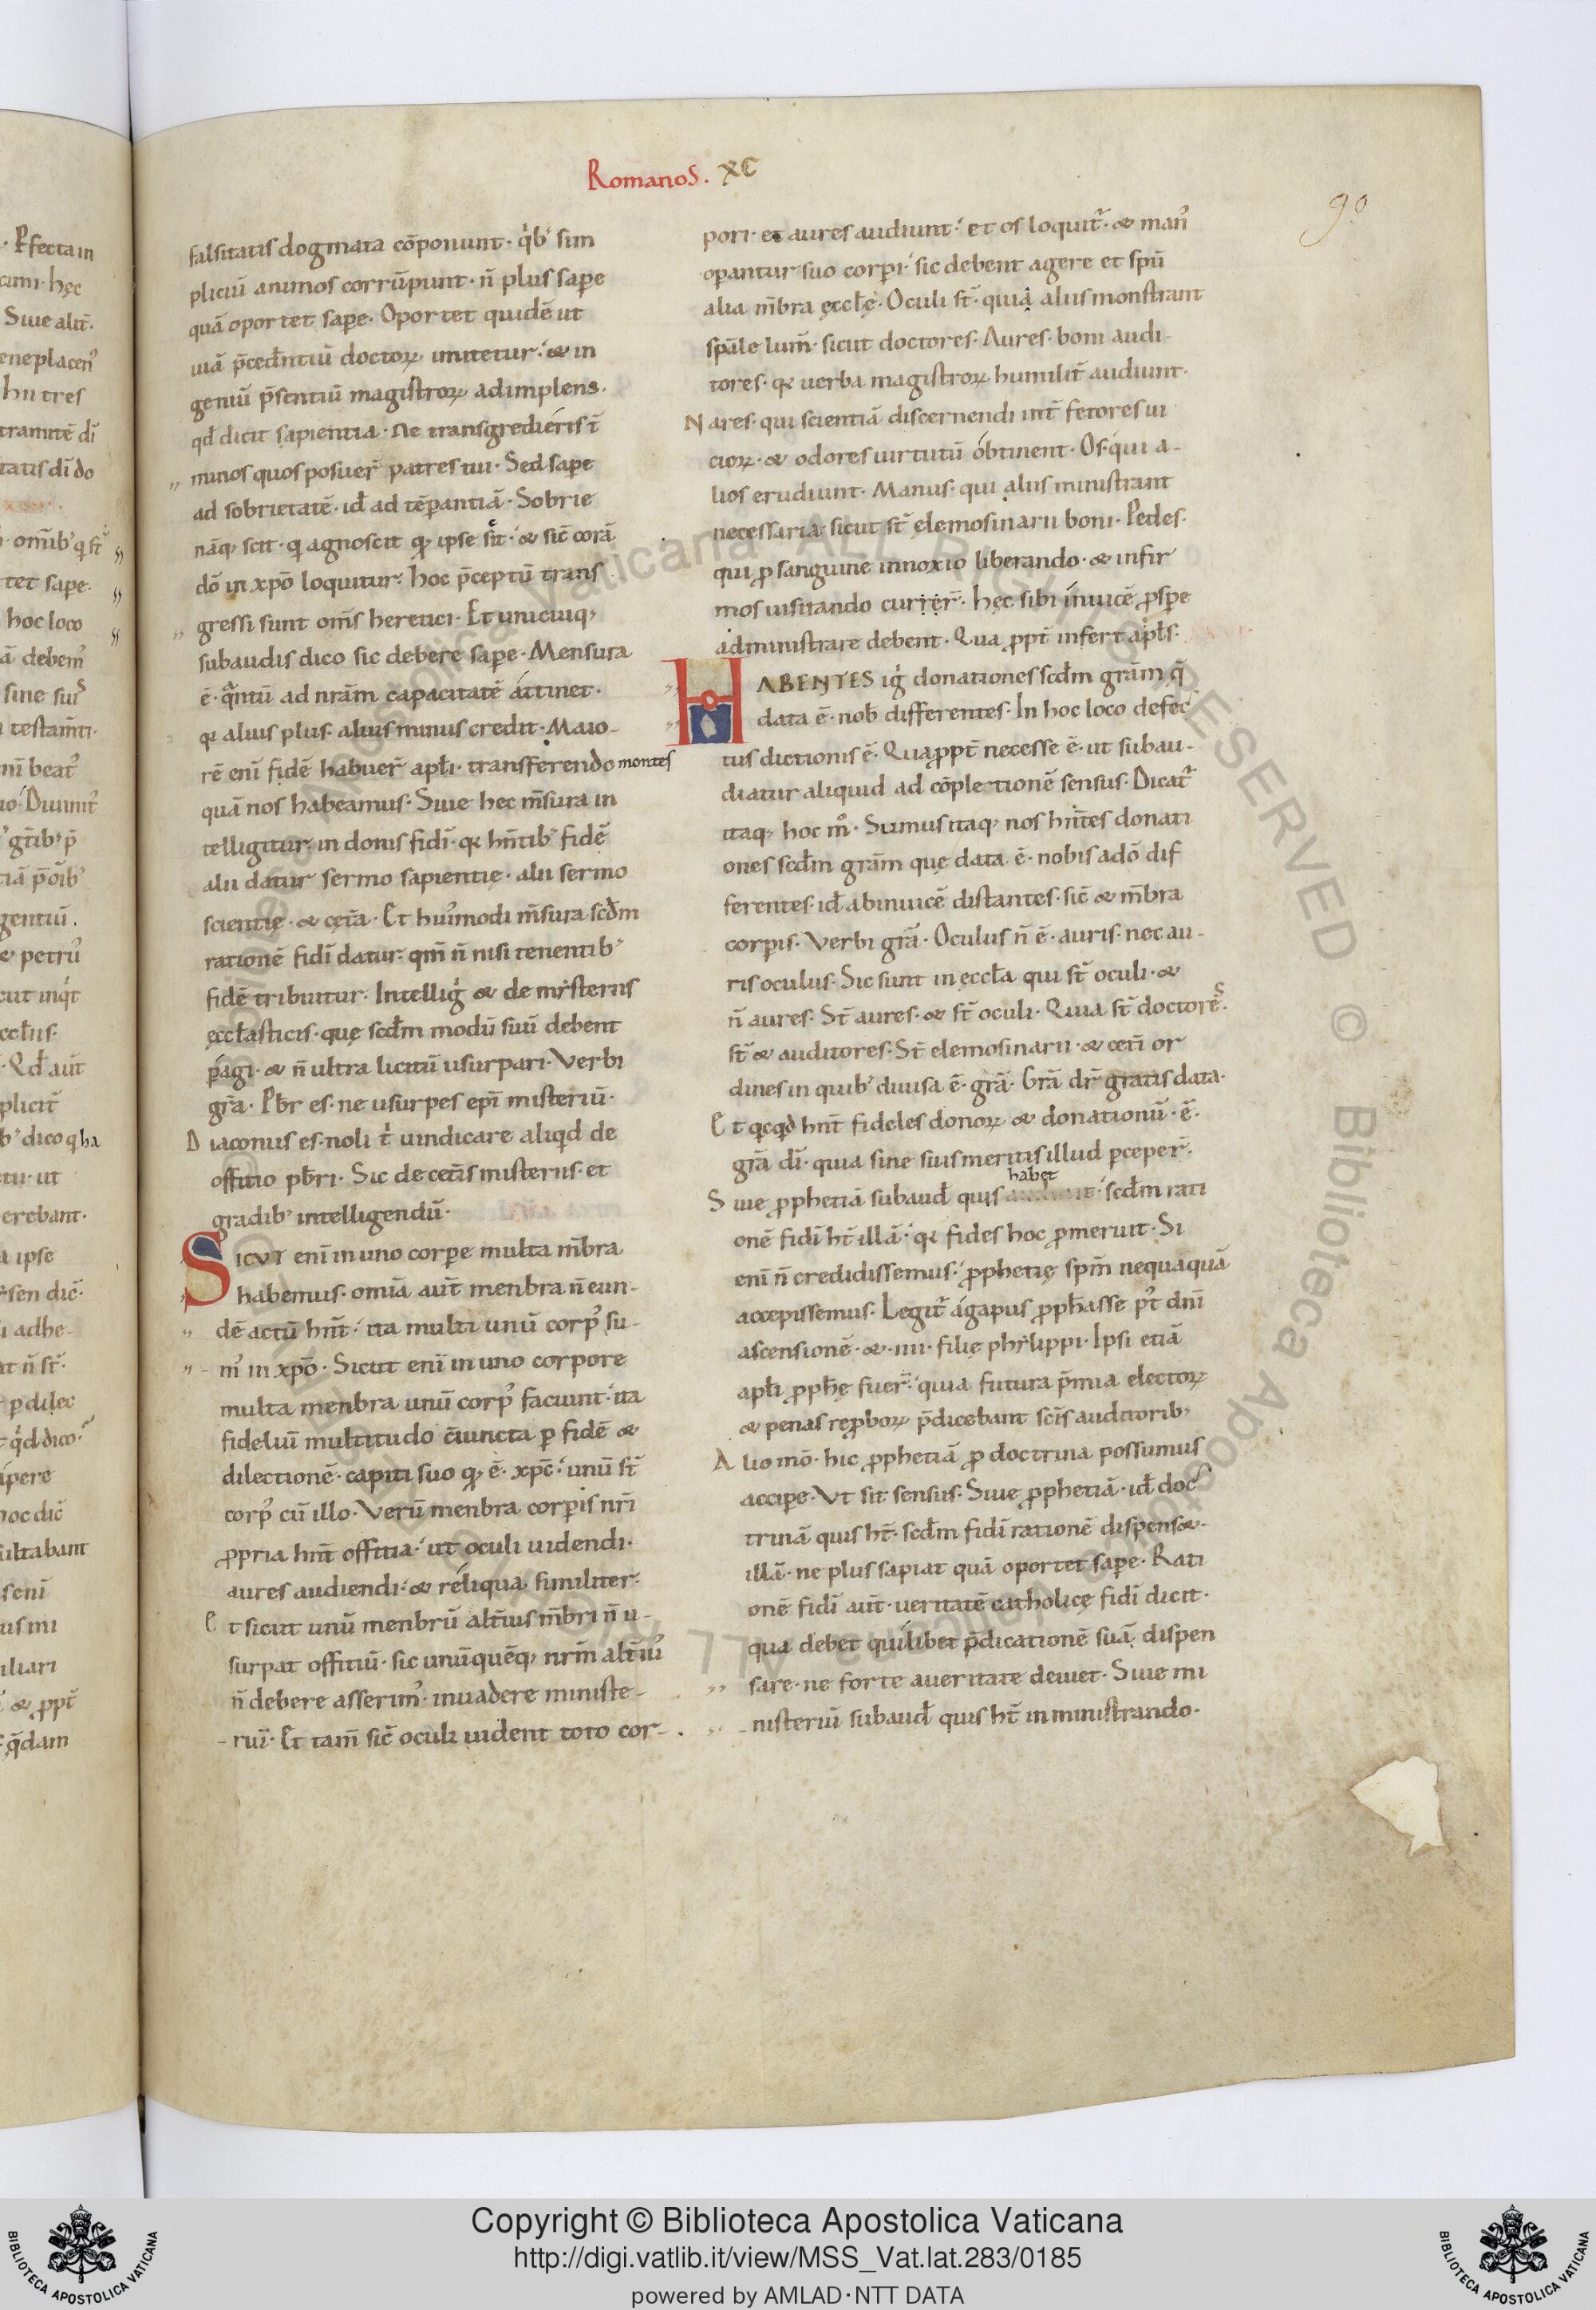 Romanos. XC
90
falsitatis dogmata cõponunt · q̇bꝰ sim
pliciũ animos corrũpunt · ñ plus sape
quã oportet sape · Oportet quidẽ ut
uiã p̄cedẽntiũ doctoꝝ imitetur · & in
geniũ p̄sentiũ magistroꝝ adimplens ·
qđ dicit sapientia · Ne transgrediéris t̄
minos quos posuer̄ patres tui · Sed sape
ad sobrietatẽ · iđ ad tẽꝑantiã · Sobrie
nãq; scit · q̇ agnoscit qđ ipse sit · & sic̄ corã
dõ in xp̄o loquitur · hoc p̄ceptũ trans
gressi sunt om̄s heretici · Et unicuiq;
subaudis dico sic debere sape · Mensura
ẽ · quãntũ ad nr̄am capacitatẽ áttinet ·
qꝛ alius plus · alius minus credit · Maio-
rẽ enī fidẽ habuer̄ apl̄i · transferendo montes
quã nos habeamus · Siue hec m̄sura in
telligitur · in donis fidī · qꝛ hn̄tibꝰ fidẽ
alii datur sermo sapientię · alii sermo
scientię · & cet̄a · Et huꝰmodi m̄sura scd̄m
rationẽ fidī datur · qm̄ ñ nisi tenentibꝰ
fidẽ tribuitur · Intellig̊ & de misteriis
ęccl̄asticis · quę scd̄m modũ suũ debent
ꝑagi · & ñ ultra licitũ usurpari · Verbi
gr̄a · Pb̄r es · ne usurpes epī misteriũ ·
Diaconus es · noli t̊ uindicare aliqđ de
offitio pb̄ri · Sic de cet̄is misteriis · et
gradibꝰ intelligendũ ·
SICVT enī in uno corpe multa m̄bra
habemus · omīa aut̄ menbra ñ eun-
dẽ actũ hn̄t · ita multi unũ corpꝰ su-
mꝰ in xp̄o · Sicut enī in uno corpore
multa menbra unũ corpꝰ faciunt · ita
fideliũ multitudo c̄iuncta ꝑ fidẽ &
dilectionẽ · capiti suo qđ ẽ · xp̄c · unũ st̄
corpꝰ cũ illo · Verũ menbra corpis nr̄i
ꝓpria hn̄t offitia · ut oculi uidendi ·
aures audiendi · & réliqua similiter ·
Et sicut unũ menbrũ alt̄ius m̄bri ñ u-
surpat offitiũ · sic unũquẽq; nr̄m alt̄iuꝰ
ñ debere asserimꝰ · inuadere ministe-
riũ · Et tam̄ sic̄ oculi uident toto cor-
pori · et aures audiunt · et os loquit̄ · & manꝰ
oꝑantur suo corpi · sic debent agere et spũ
alia m̄bra ęccl̄ę · Oculi st̄ · quia aliis monstrant
spāle lum̄ · sicut doctores · Aures · boni audi-
tores · qꝛ uerba magistroꝝ humilit̄ audiunt ·
Nares · qui scientiã discernendi int̄ fetores ui
cioꝝ · & odores uirtutũ óbtinent · Os · qui a-
lios erudiunt · Manus · qui aliis ministrant
necessaria sicut st̄ elemosinarii boni · Pedes ·
qui ꝓ sanguine innoxio liberando · & infir
mos uisitando currer̄ · hęc sibi inuicẽ ꝓspe
administrare debent · Qua ꝓpt̄ infert apl̄s ·
HABENTES ig̊ donationes scd̄m gr̄am q̄
data ẽ · nob̄ differentes · In hoc loco defec
tus dictionis ẽ · Quaꝓpt̄ necesse ẽ · ut subau-
diatur aliquid ad cõplectionẽ sensus · Dicat̄
itaq; hoc m̊ · Sumus itaq; nos hn̄tes donati
ones scd̄m gr̄am quę data ẽ · nobis adõ dif
ferentes · iđ abinuicẽ distantes · sic̄ & m̄bra
corpis · Verbi gr̄a · Oculus ñ ẽ · auris · nec au-
ris oculus · Sic sunt in ęccl̄a qui st̄ oculi · &
ñ aures · St̄ aures · & st̄ oculi · Quia st̄ doctores ·
st̄ & auditores · St̄ elemosinarii · & cet̄i or
dines in quibꝰ diuisa ẽ · gr̄a · Gr̄a dr̄ gratis data ·
Et qcqđ hn̄t fideles donoꝝ & donationũ · ẽ ·
gr̄a dī · quia sine suis meritis illud pceper̄ ·
habet
Siue ꝓphetiã subauđ quis · scd̄m rati
onẽ fidī ht̄ illã · qꝛ fides hoc ꝓmeruit · Si
enī ñ credidissemus · ꝓphetię spm̄ nequaquã
accepissemus · Legit̄ ágapus ꝓph̄asse pꝰt dn̄i
ascensionẽ · & · iiii · filię phylippi · Ipsi etiã
apl̄i ꝓph̄ę fuer̄ · quia futura p̄mia electoꝝ
& penas reꝓboꝝ p̄dicebant scīs auditorib;
Alio mõ · hic ꝓphetiã ꝓ doctrina possumus
accipe · Vt sit sensus · Siue ꝓphetiã · iđ doc
trinã quis ht̄ · scd̄m fidī rationẽ dispens& ·
illã · ne plus sapiat quã oportet sape · Rati
onẽ fidī aut̄ · ueritatẽ catholicę fidī dicit ·
qua debet quilibet p̄dicationẽ suã dispen
sare · ne forte aueritate deuiet · Siue mi
nisteriũ subauđ quis ht̄ in ministrando ·
Copyright © Biblioteca Apostolica Vaticana
http://digi.vatlib.it/view/MSS_Vat.lat.283/0185
powered by AMLAD·NTT DATA
BIBLIOTECA APOSTOLICA VATICANA
BIBLIOTECA APOSTOLICA VATICANA